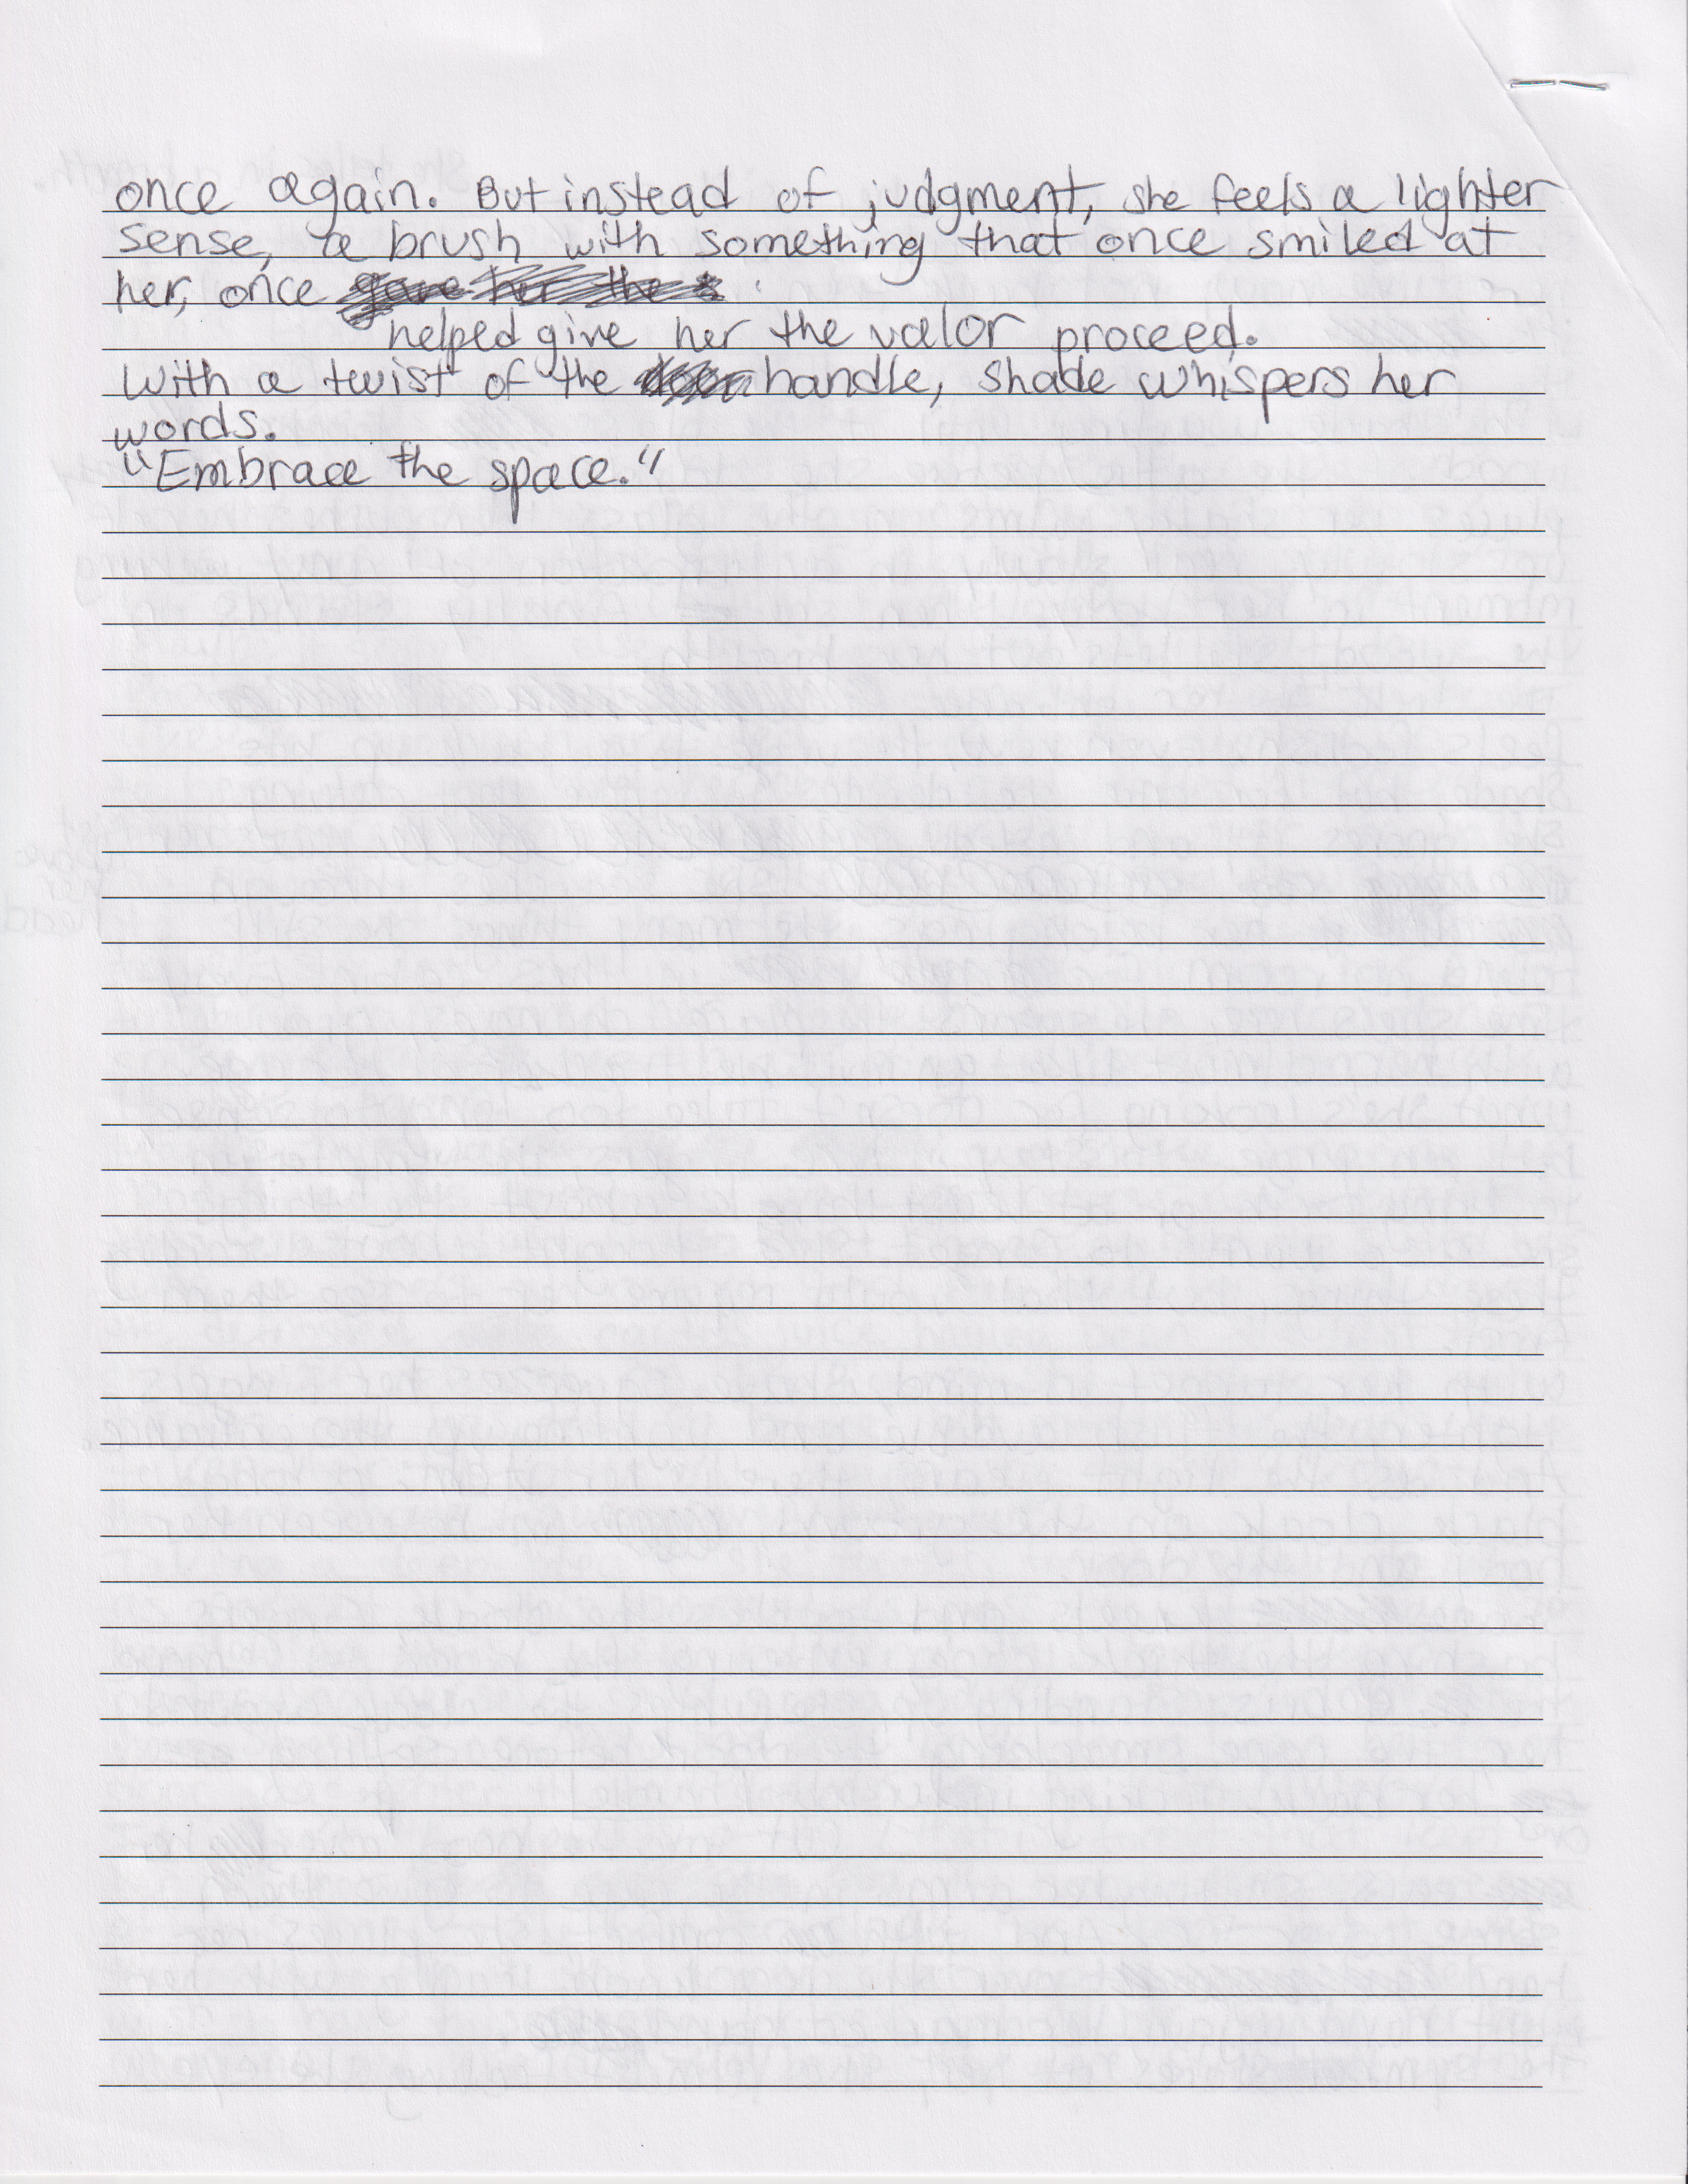 once again. But instead of judgment, she feels a lighter
sense, a brush with something that once smiled at
her, once
helped give her the valor proceed.
With a twist of the handle, Shade whispers her
words.
"Embrace the space."